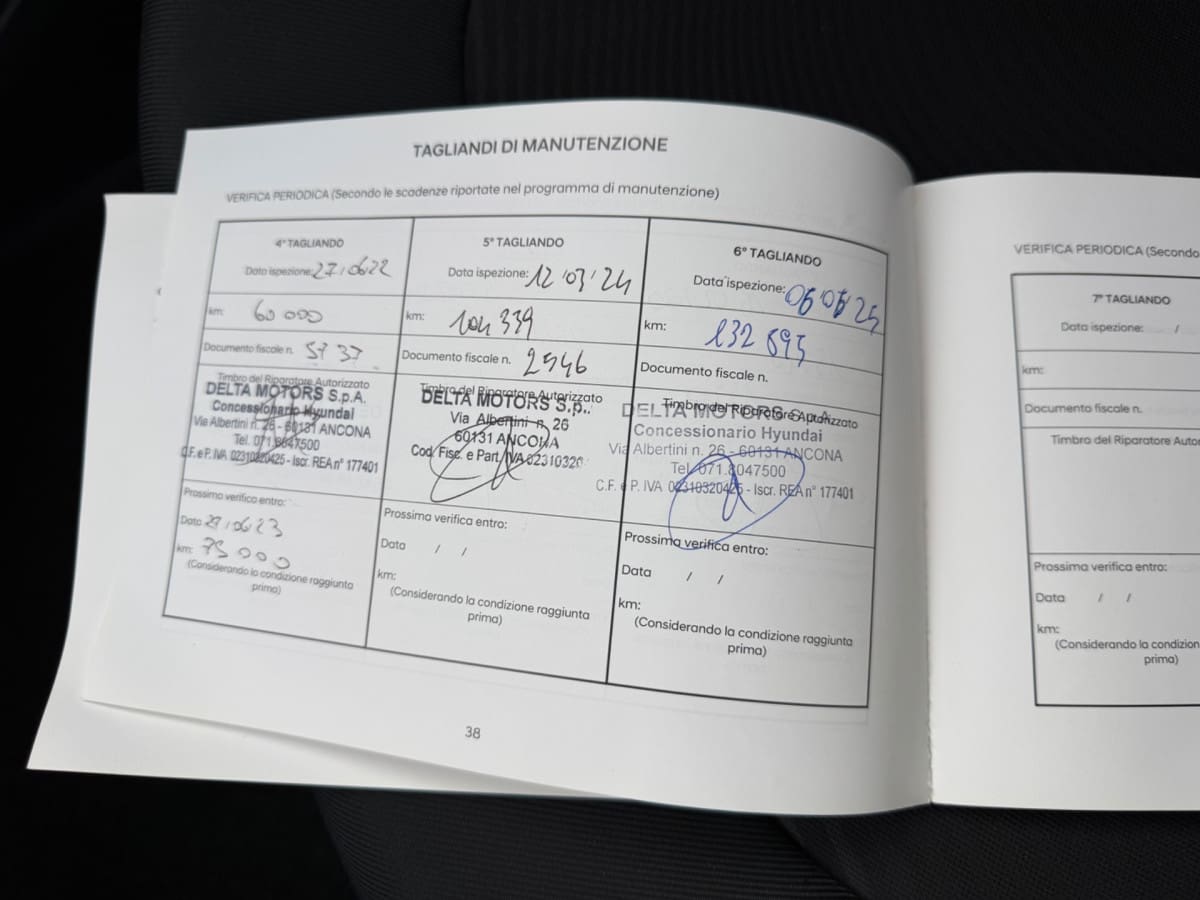 TAGLIANDI DI MANUTENZIONE
VERIFICA PERIODICA (Secondo le scadenze riportate nel programma di manutenzione)
4° TAGLIANDO
Data ispezione: 27/06/22
km: 60 000
Documento fiscale n. 5737
Timbro del Riparatore Autorizzato
DELTA MOTORS S.p.A.
Concessionario Hyundai
Via Albertini n. 26 - 60131 ANCONA
Tel. 071.8047500
C.F. e P. IVA 02310320425 - Iscr. REA n° 177401
Prossima verifica entro:
Data 27/06/23
km: 75 000
(Considerando la condizione raggiunta
prima)
5° TAGLIANDO
Data ispezione: 12/03/24
km: 104 339
Documento fiscale n. 2546
Timbro del Riparatore Autorizzato
DELTA MOTORS S.p..
Via Albertini n. 26
60131 ANCONA
Cod. Fisc. e Part. IVA 02310320
Prossima verifica entro:
Data / /
km:
(Considerando la condizione raggiunta
prima)
6° TAGLIANDO
Data ispezione: 06/06/25
km: 132 695
Documento fiscale n.
Timbro del Riparatore Autorizzato
DELTA MOTORS S.p.A.
Concessionario Hyundai
Via Albertini n. 26 - 60131 ANCONA
Tel. 071.8047500
C.F. e P. IVA 02310320425 - Iscr. REA n° 177401
Prossima verifica entro:
Data / /
km:
(Considerando la condizione raggiunta
prima)
38
VERIFICA PERIODICA (Secondo
7° TAGLIANDO
Data ispezione: /
km:
Documento fiscale n.
Timbro del Riparatore
Prossima verifica entro:
Data / /
km:
(Considerando la condizion
prima)